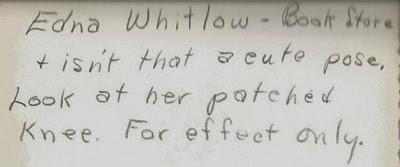 Edna Whitlow - Book Store
+ isn't that a cute pose.
Look at her patched
Knee. For effect only.